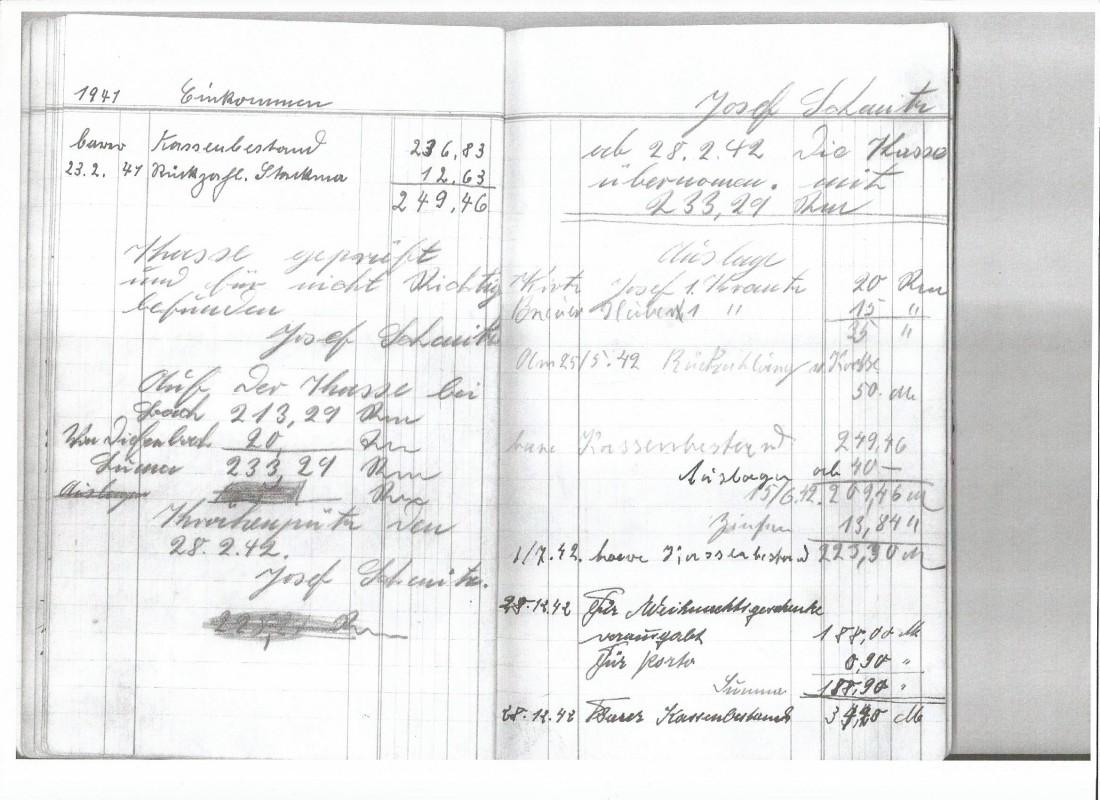 1941 Einkommen
barer Kassenbestand 236,83
23.2. 41 Rückzahl. 12,63
249,46
Kasse geprüft
und für nicht Richtig
befunden
Josef Schmitz
Auf der Kasse bei
213,29 Rm
Von Diefenbach 20, Rm
Summa 233,29 Rm
Auslagen Rm
den
28.2.42.
Josef Schmitz.
Josef Schmitz
ab 28.2.42 Die Kasse
übernomen. mit
233,29 Rm
Auslage
Josef 1. 20 Rm
1 " 15 "
35 "
Am 25/5.42 Rückzahlung Kasse
50. M
Kassenbestand 249,46
Auslagen ab 40 —
15/6.42. 209,46 M
Zinsen 13,84 "
1/7.42. Kassenbestand 223,30 M
28.12.42 Für Weihnachtsgeschenke
verausgabt 188,00 M
Für Porto 0,90 "
Summa 188,90 "
28.12.42 Barer Kassenbestand M